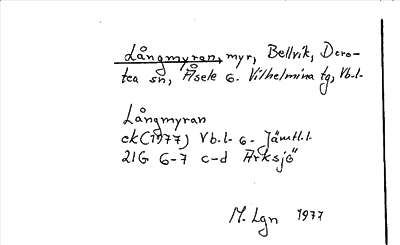 Långmyran, myr, Bellvik, Doro-
tea sn, Åsele o. Vilhelmina tg, Vb.l.
Långmyran
ek (1977) Vb.l. o. Jämtl.l.
21G 6-7 c-d Arksjö
M. Lgn 1977